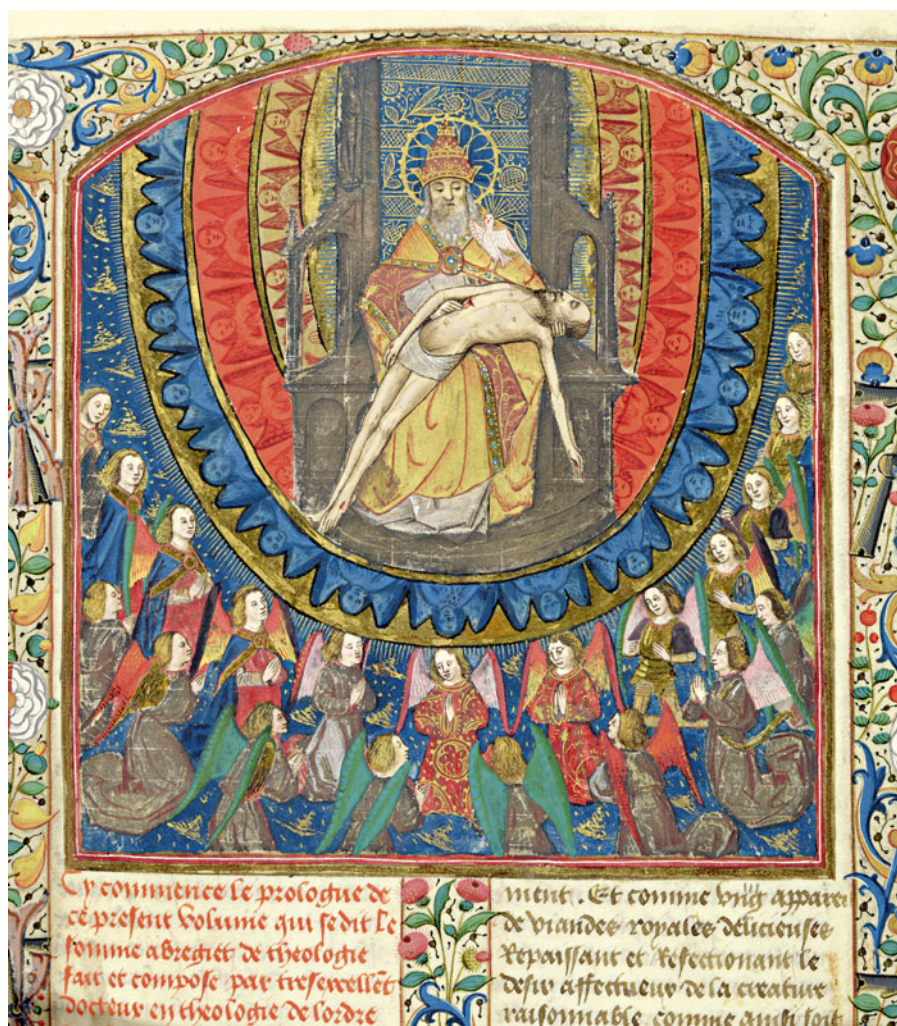 Cy commence le prologue de
ce present volume qui se dit le
somme abregiet de theologie
fait et compose par tresexcellēt
docteur en theologie de lordre
ment . Et comme vng apparei
de viandes royales delicieuses
Repaissant et Refectionant le
desir affectueux de la creature
raisonnable comme ainsi soit